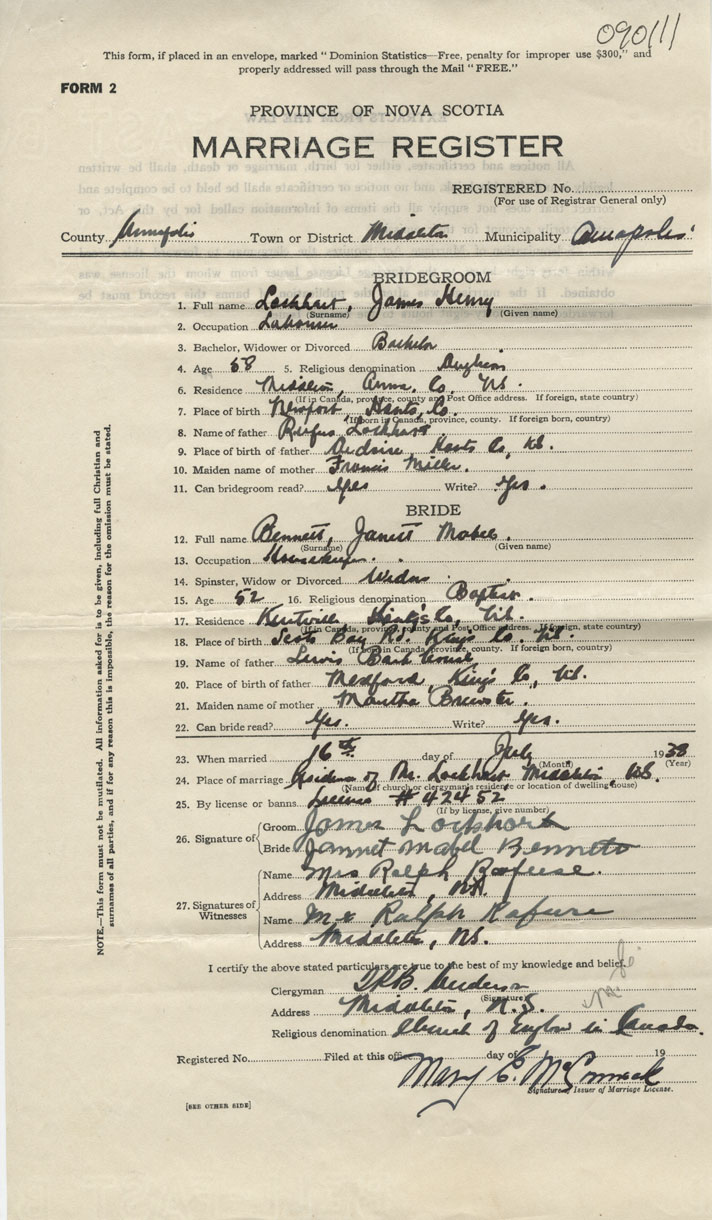 090111
This form, if placed in an envelope, marked "Dominion Statistics—Free, penalty for improper use $300," and
properly addressed will pass through the Mail "FREE."
FORM 2
PROVINCE OF NOVA SCOTIA
MARRIAGE REGISTER
REGISTERED No.
(For use of Registrar General only)
County Annapolis Town or District Middleton Municipality Annapolis
BRIDEGROOM
1. Full name Lockhart, James Henry
(Surname) (Given name)
2. Occupation Labourer
3. Bachelor, Widower or Divorced Bachelor
4. Age 58 5. Religious denomination Anglican
6. Residence Middleton, Anna. Co, NS.
(If in Canada, province, county and Post Office address. If foreign, state country)
7. Place of birth Newport, Hants, Co.
(If born in Canada, province, county. If foreign born, country)
8. Name of father Rufus Lockhart
9. Place of father Hants Co, NS.
10. Maiden name of mother Francis Miller.
11. Can bridegroom read? Yes Write? Yes.
BRIDE
12. Full name Bennett, Janett Mabel.
(Surname) (Given name)
13. Occupation Housekeeper.
14. Spinster, Widow or Divorced Widow
15. Age 52 16. Religious denomination Baptist.
17. Residence Kentville, Co, NS.
(If in Canada, province, county and Post Office address. If foreign, state country)
18. Place of birth Scots Bay Rd. King's Co. NS.
(If born in Canada, province, county. If foreign born, country)
19. Name of father Lewis
20. Place of birth of father Medford, King's Co, NS.
21. Maiden name of mother Martha Brewster.
22. Can bride read? Yes. Write? Yes.
23. When married 16th day of July 1938
(Month) (Year)
24. Place of marriage Residence of Mr. Lockhart Middleton, NS.
(Name of church or clergyman's residence or location of dwelling house)
25. By license or banns License # 42452
(If by license, give number)
26. Signature of Groom James Lockhart
Bride Jannet Mabel Bennett
27. Signatures of Witnesses
Name Mrs Ralph
Address Middleton, NS.
Name Mr Ralph Rafuse
Address Middleton, NS.
I certify the above stated particulars are true to the best of my knowledge and belief.
Clergyman Anderson
(Signature)
Address Middleton, N.S.
Religious denomination Church of England in Canada.
Registered No. Filed at this office day of 19
Mary E. McCormack
Signature of Issuer of Marriage License.
[SEE OTHER SIDE]
NOTE.—This form must not be mutilated. All information asked for is to be given, including full Christian and
surnames of all parties, and if for any reason this is impossible, the reason for the omission must be stated.